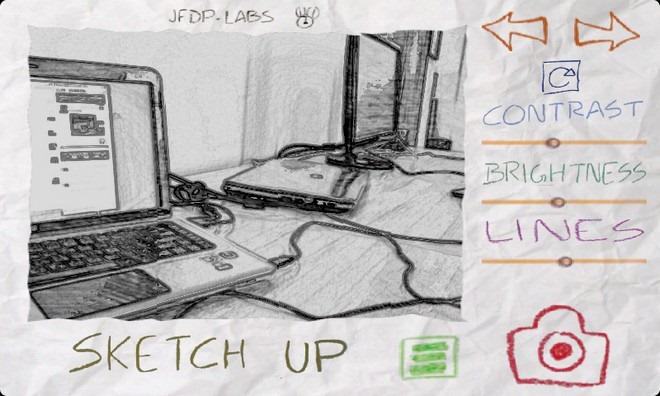 JFDP-LABS
CONTRAST
BRIGHTNESS
LINES
SKETCH UP